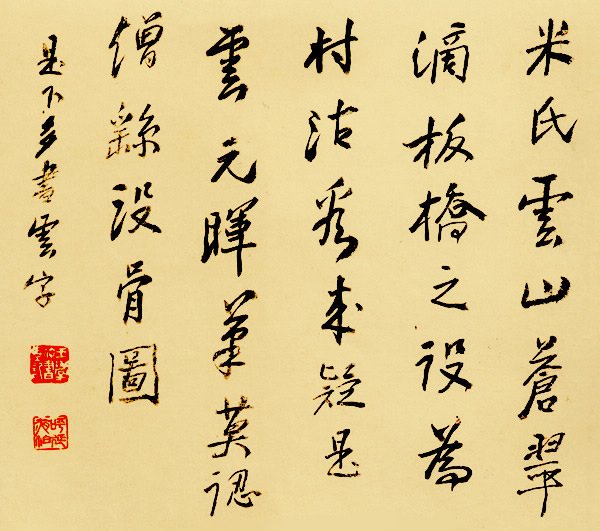 米氏雲山蒼翠
滴板橋之設為
村沽看来疑是
雲元暉筆莫認
僧繇没骨圖
是下多書雲字